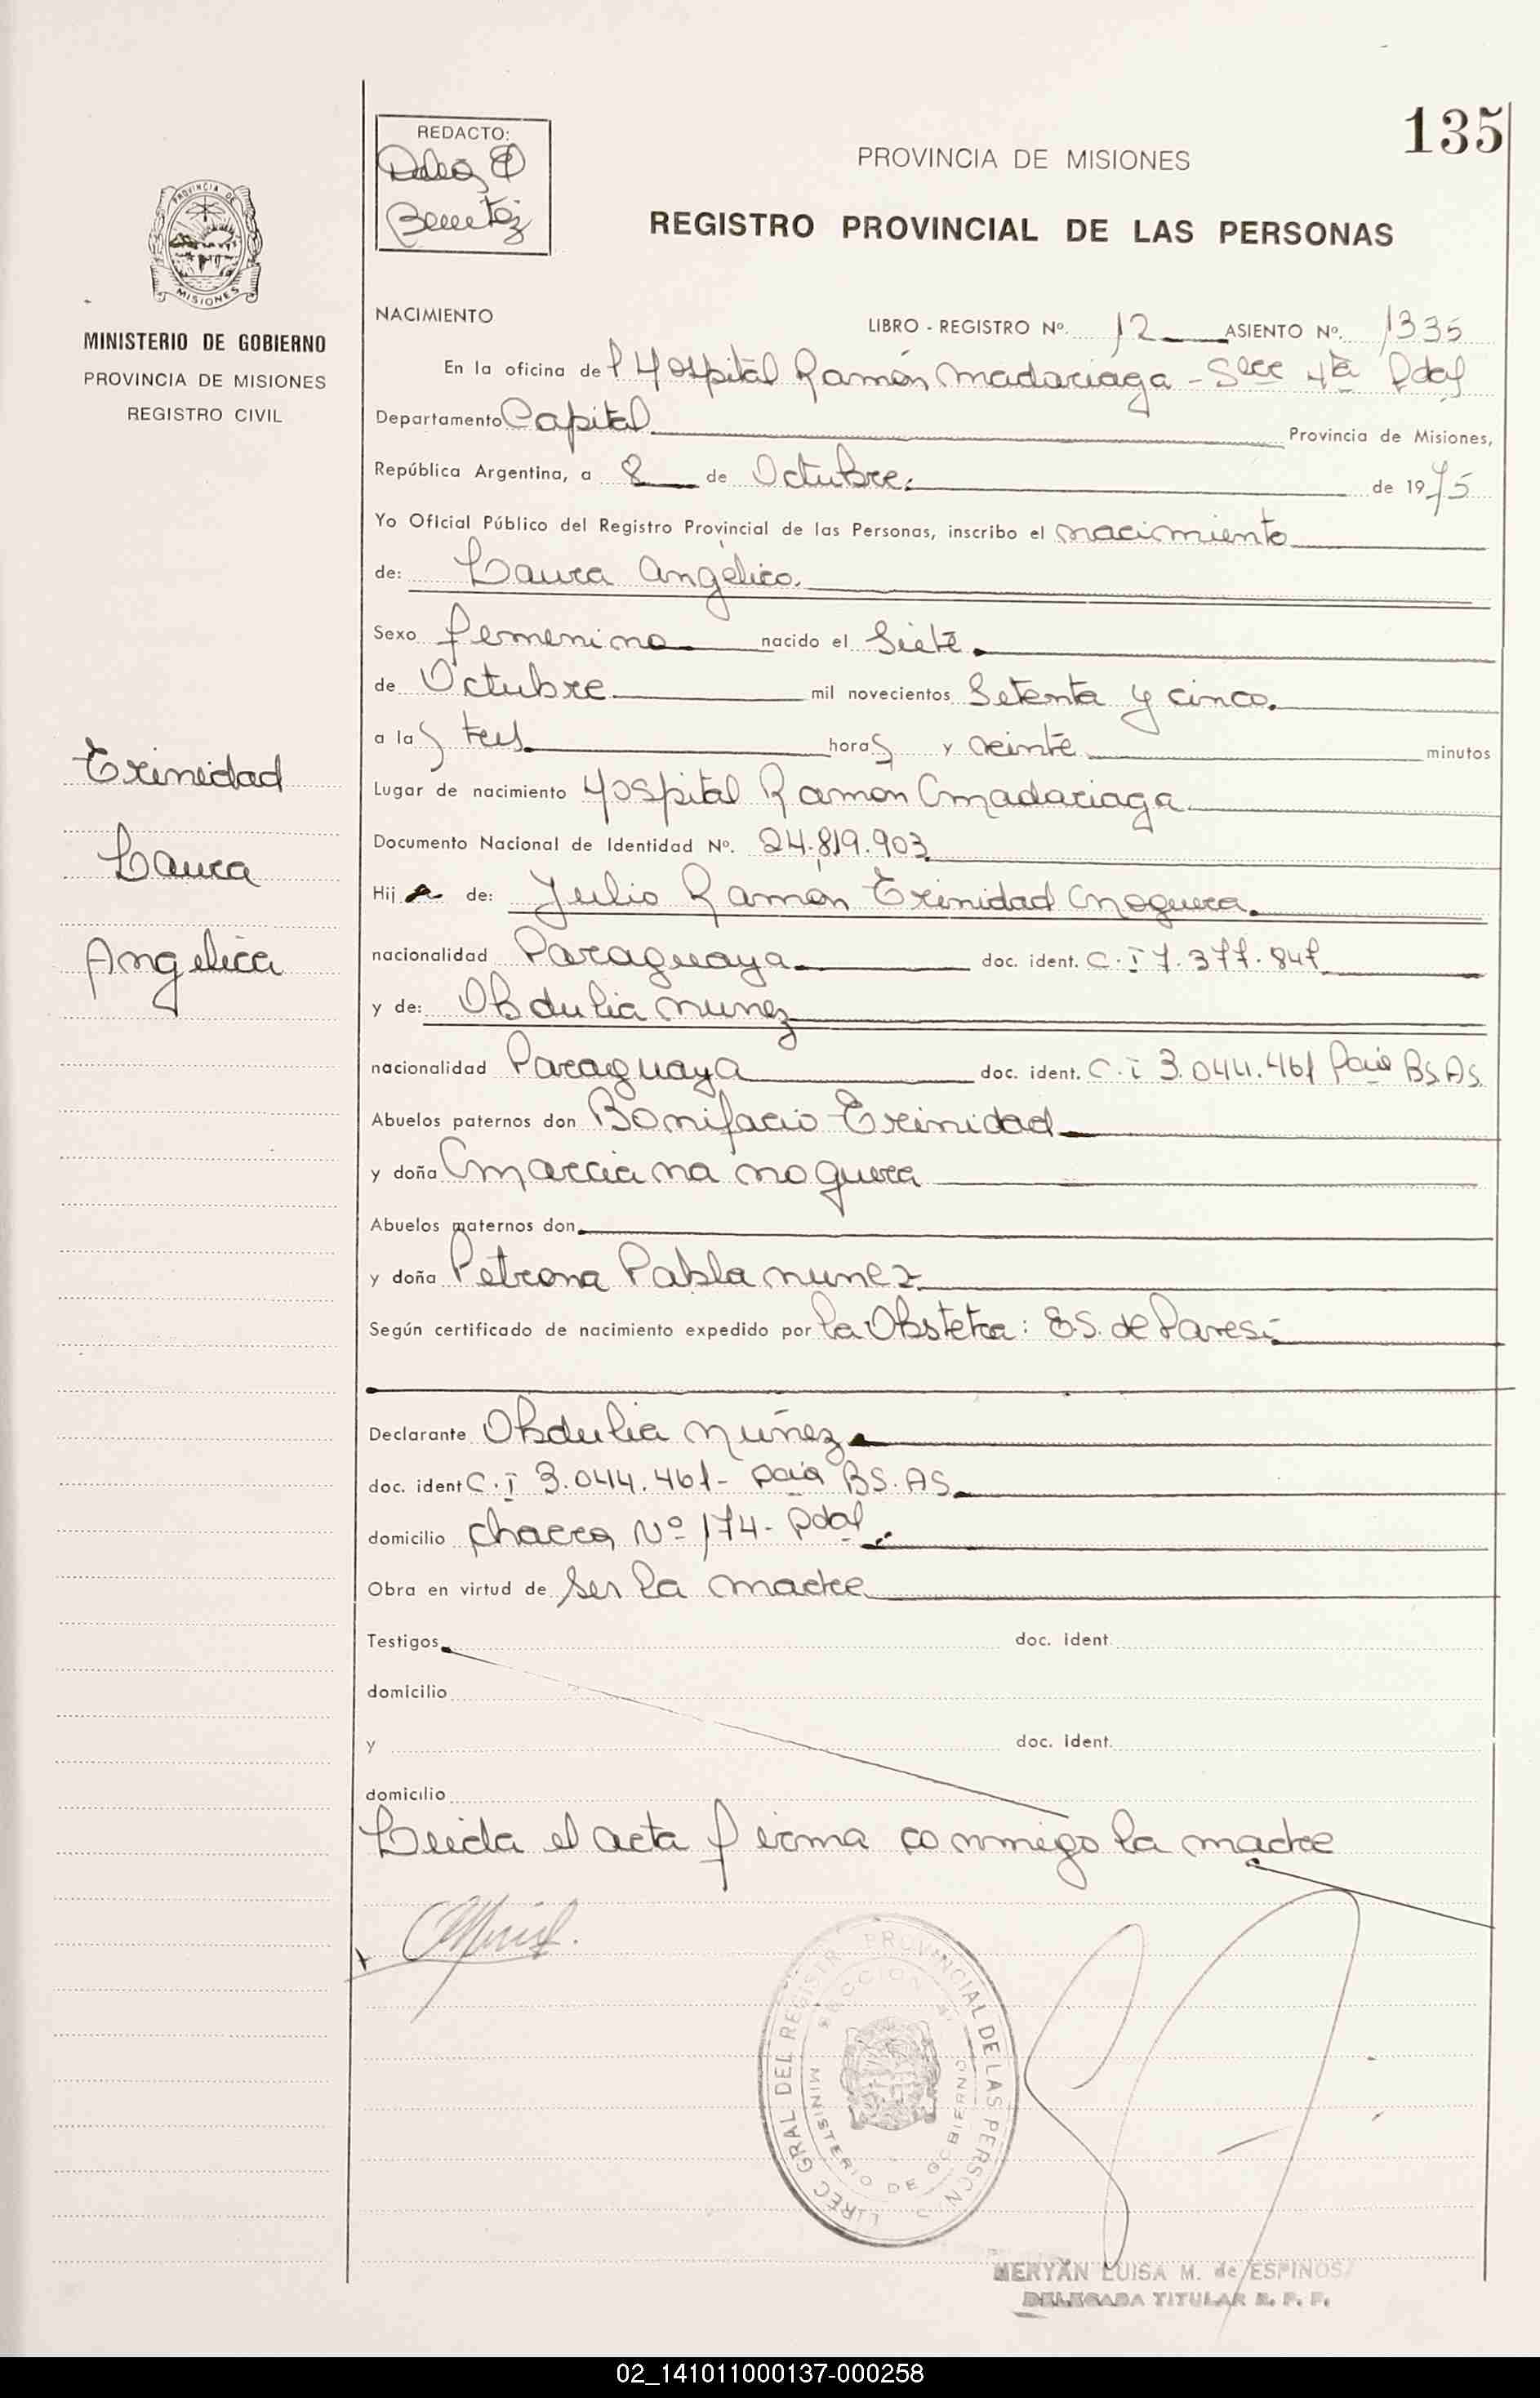 135
REDACTO:
Benitez
PROVINCIA DE MISIONES
REGISTRO PROVINCIAL DE LAS PERSONAS
PROVINCIA DE
MISIONES
MINISTERIO DE GOBIERNO
PROVINCIA DE MISIONES
REGISTRO CIVIL
Trinidad
Laura
Angelica
NACIMIENTO
LIBRO - REGISTRO Nº. 12 ASIENTO Nº. 1335
En la oficina del Hospital Ramón Madariaga - Secc 4ta Pdas
Departamento Capital Provincia de Misiones,
República Argentina, a 8 de Octubre. de 1975
Yo Oficial Público del Registro Provincial de las Personas, inscribo el nacimiento
de: Laura Angélica.
Sexo femenino nacido el Siete
de Octubre mil novecientos Setenta y cinco.
a las tres horas y veinte minutos
Lugar de nacimiento Hospital Ramon Madariaga
Documento Nacional de Identidad Nº. 24.819.903
Hija de: Julio Ramón Trinidad Noguera.
nacionalidad Paraguaya doc. ident. C.I 7.377.847
y de: Obdulia nunez
nacionalidad Paraguaya doc. ident. C.i 3.044.461 BS.AS.
Abuelos paternos don Bonifacio Trinidad
y doña Marciana noguera
Abuelos maternos don
y doña Petrona Pabla nunez
Según certificado de nacimiento expedido por la Obstetra: E.S. de Paresi
Declarante Obdulia Núñez
doc. ident C.I 3.044.461- BS.AS.
domicilio chacra Nº 174- Pdas
Obra en virtud de ser la madre
Testigos doc. ident.
domicilio
y doc. ident.
domicilio
Leida el acta firma conmigo la madre
DIREC GRAL DEL REGISTR PROVINCIAL DE LAS PERSON
SECCION 4
MINISTERIO DE GOBIERNO
MERYAN LUISA M. de ESPINOS
DELEGADA TITULAR R. P. P.
02_141011000137-000258